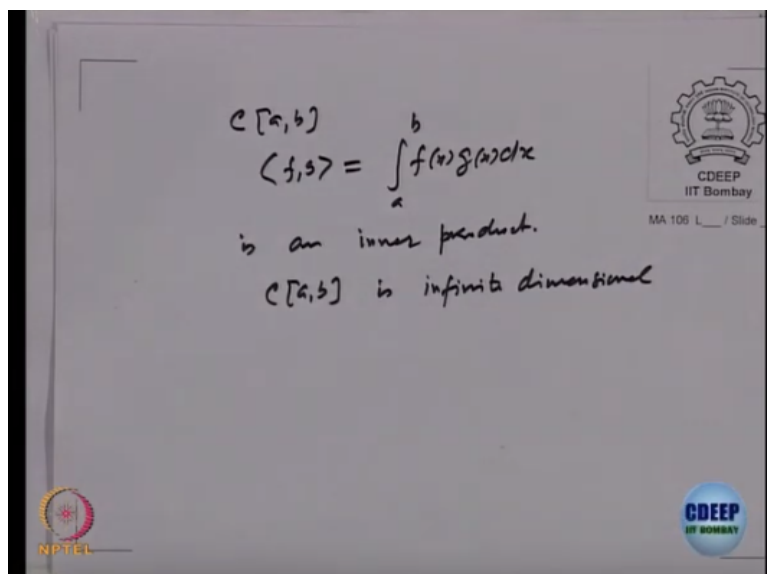 C[a,b]
⟨f,g⟩ = ∫_a^b f(x) g(x) dx
is an inner product.
C[a,b] is infinite dimensional
CDEEP
IIT Bombay
MA 106 L___ / Slide
NPTEL
CDEEP
IIT BOMBAY